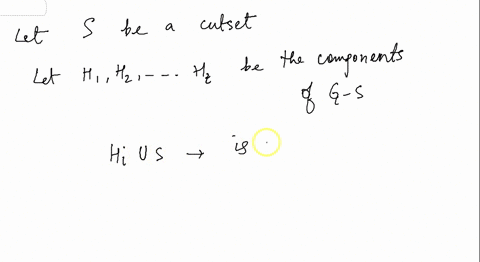 Let S be a cutset
Let H1, H2, ---. Hz be the components
of G-S
Hi U S → is